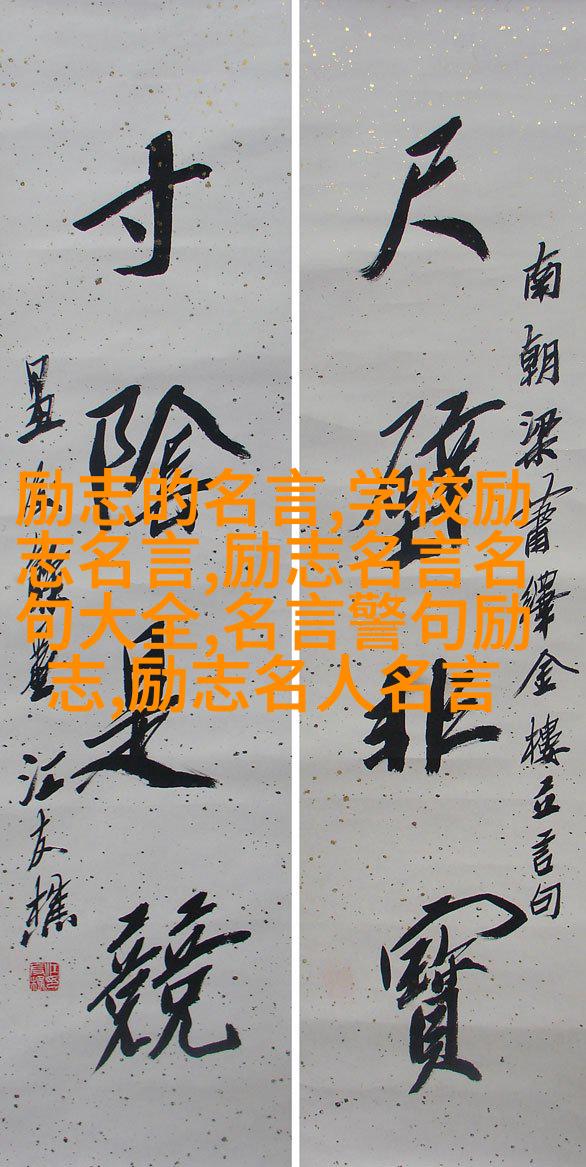 南朝梁蕭繹金樓立言句
尺璧非寶
寸陰是競
江友樵
励志的名言,学校励
志名言,励志名言名
句大全,名言警句励
志,励志名人名言